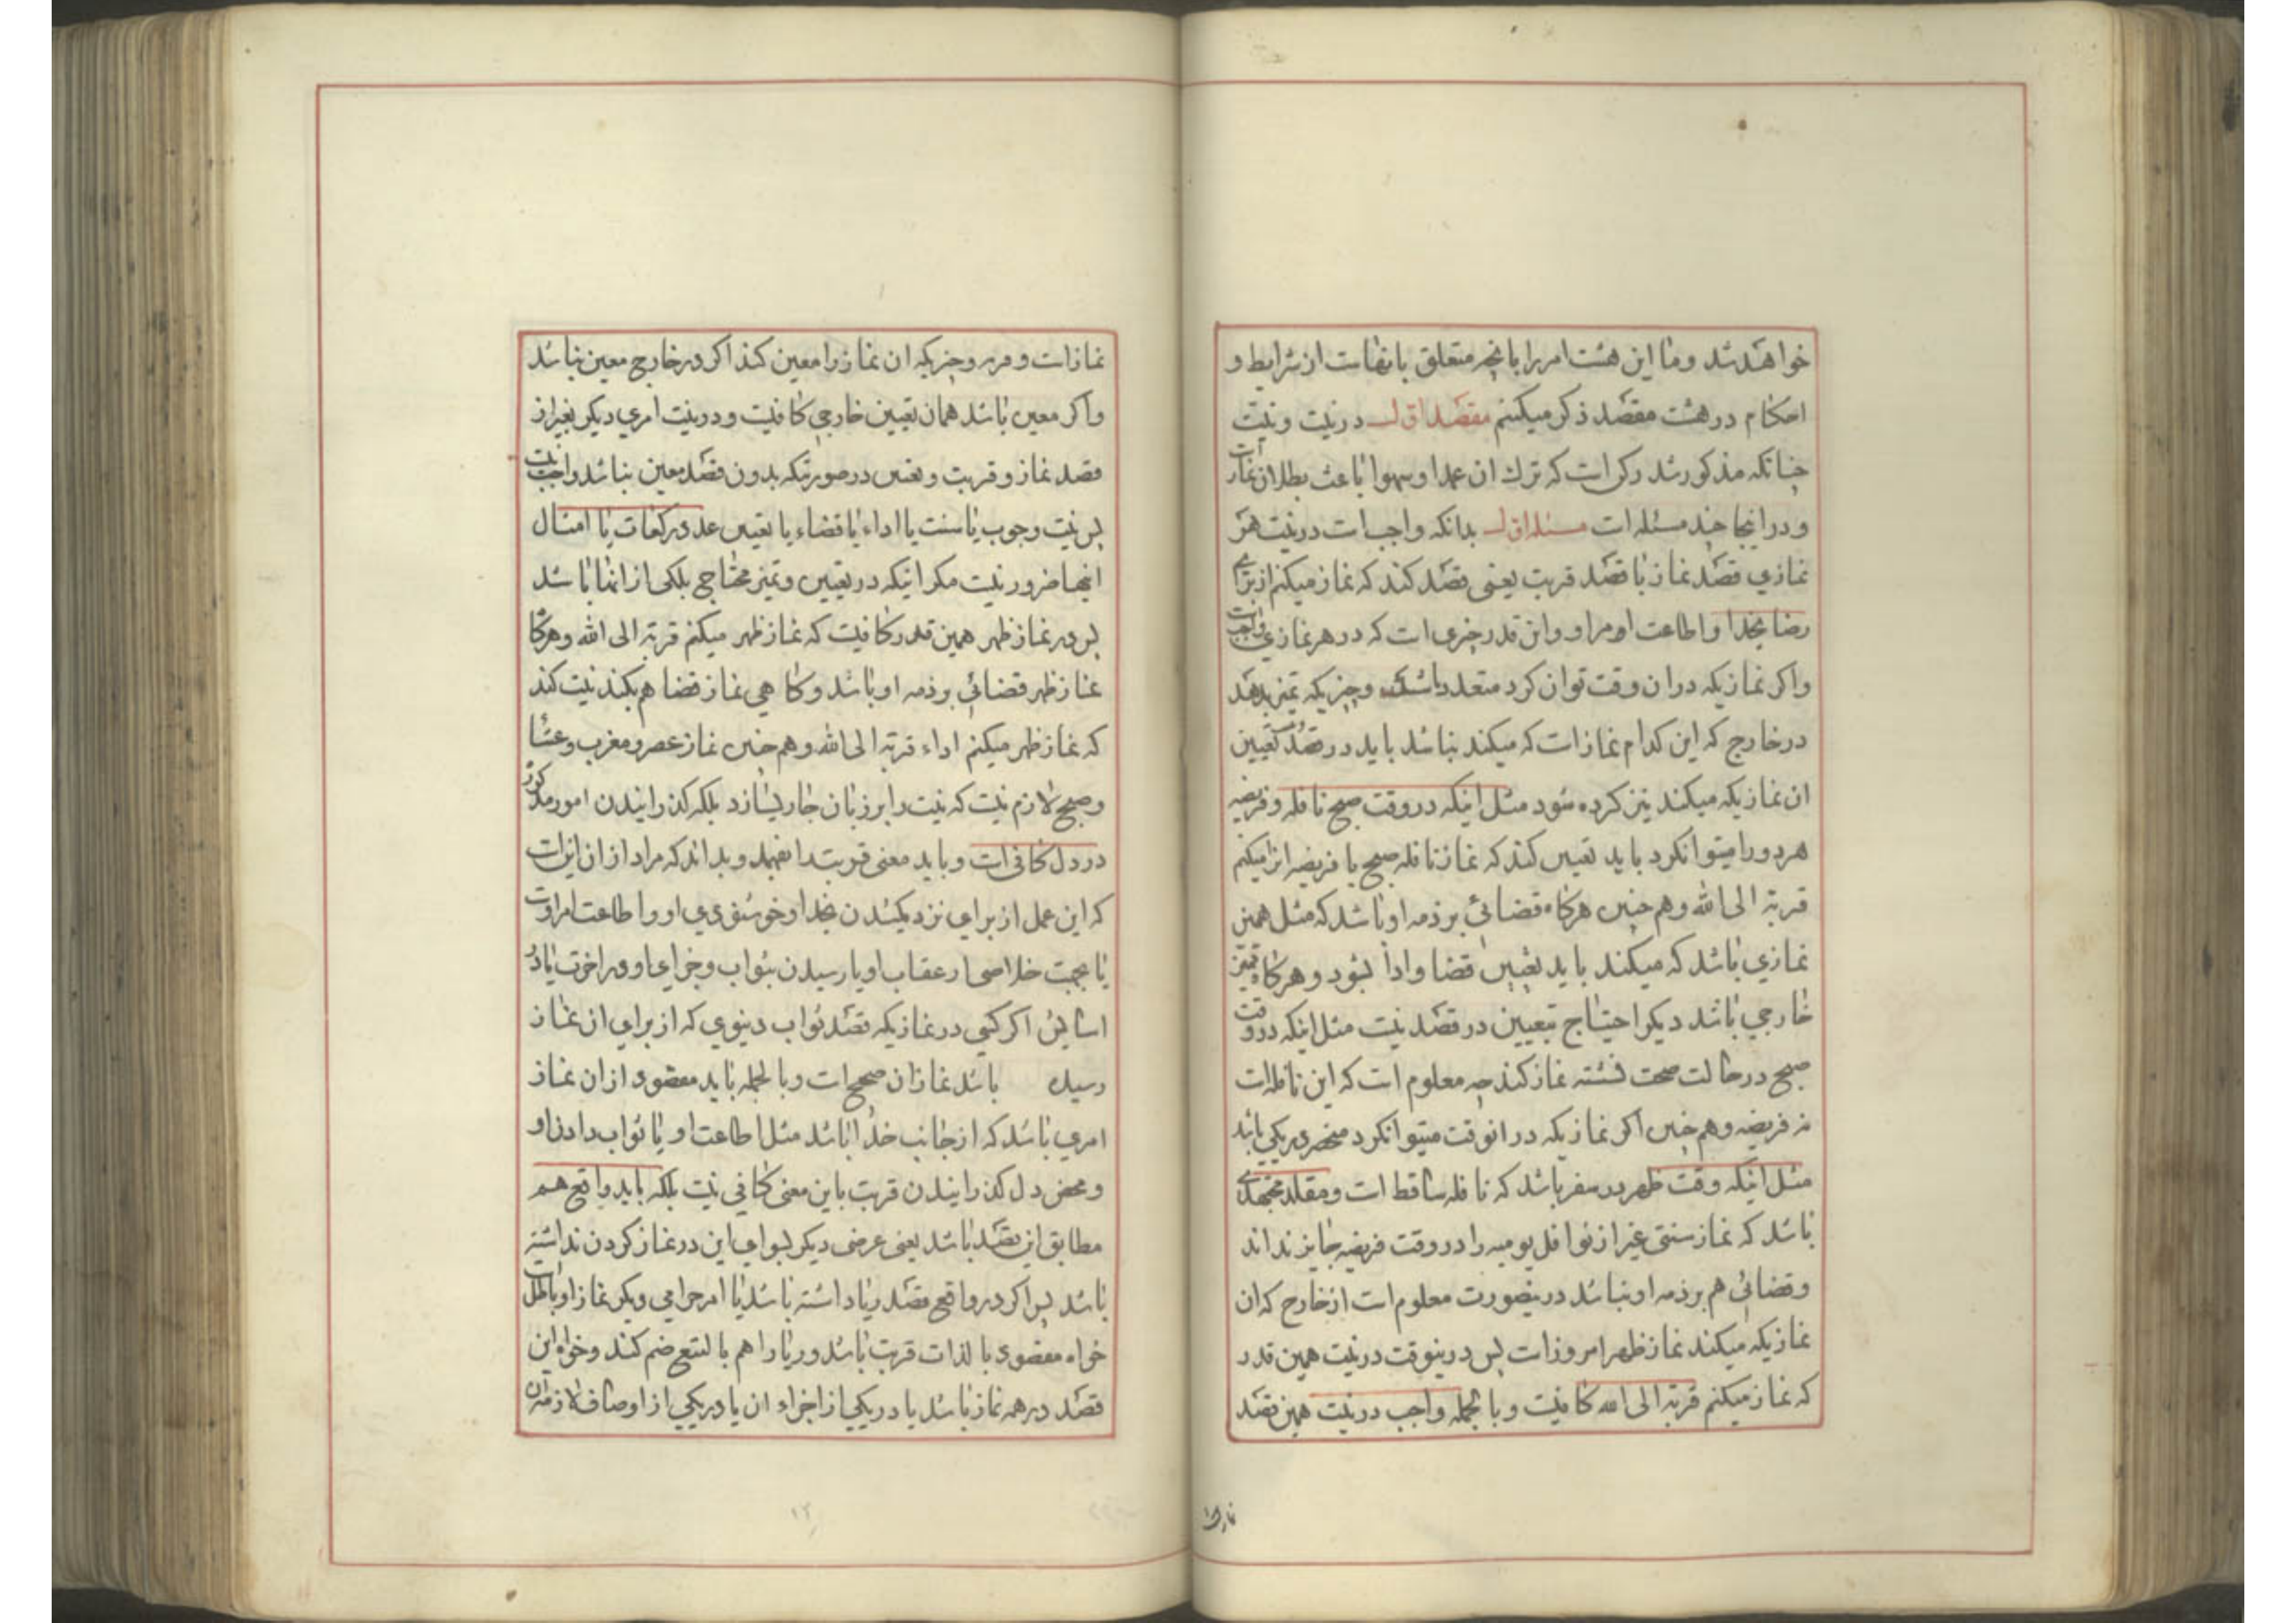 خواهد شد و ما این هشت امر را با انچه متعلق بانهاست از شرایط و
احکام در هشت مقصد ذکر میکنیم مقصد اول در نیت و نیت
چنانکه مذکور شد رکن است که ترک ان عمدا و سهوا باعث بطلان نماز است
و در اینجا چند مسئله است مسئله اول بدانکه واجب است در نیت هر
نمازی قصد نماز با قصد قربت یعنی قصد کند که نماز میکنم از برای
رضا بخدا و اطاعت امر او و این قدر چیزی است که در هر نمازی واجب است
و اکر نمازیکه در ان وقت توان کرد متعدد باشد و چیزیکه تمیز بدهد
در خارج که این کدام نماز است که میکند نباشد باید در قصد تعیین
ان نمازیکه میکند نیز کرده شود مثل اینکه در وقت صبح نافله و فریضه
هر دو را میتوانکرد باید تعیین کند که نماز نافله صبح یا فریضه انرا میکنم
قربة الی الله و هم چنین هرکاه قضائی بر ذمه او باشد که مثل همین
نمازی باشد که میکند باید تعیین قضا و ادا بشود و هرکاه تمیز
خارجی باشد دیکر احتیاج بتعیین در قصد نیست مثل اینکه در وقت
صبح در حالت صحت نشسته نماز کند چه معلوم است که این نافله است
نه فریضه و هم چنین اکر نمازیکه در انوقت میتوانکرد منحصر در یکی باشد
مثل اینکه وقت ظهر در سفر باشد که نافله ساقط است و مقلد مجتهدی
باشد که نماز سنتی غیر از نوافل یومیه را در وقت فریضه جایز نداند
و قضائی هم بر ذمه او نباشد درینصورت معلوم است از خارج که ان
نمازیکه میکند نماز ظهر امروز است پس درینوقت در نیت همین قدر
که نماز میکنم قربة الی الله کافیست و بالجمله واجب در نیت همین قصد
نماز است و قربت و چیزیکه ان نماز را معین کند اکر در خارج معین نباشد
و اکر معین باشد همان تعیین خارجی کافیست و در نیت امری دیکر بغیر از
قصد نماز و قربت و تعیین در صورتیکه بدون قصد معین نباشد واجب نیست
پس نیت وجوب یا سنت یا اداء یا قضاء یا تعیین عدد رکعات یا امثال
اینها ضرور نیست مکر اینکه در تعیین و تمیز محتاج بیکی از انها باشد
پس در نماز ظهر همین قدر کافیست که نماز ظهر میکنم قربة الی الله و هرکاه
نماز ظهر قضائی بر ذمه او باشد و کاهی نماز قضا هم بکند نیت کند
که نماز ظهر میکنم اداء قربة الی الله و هم چنین نماز عصر و مغرب و عشا
و صبح لازم نیست که نیت را بر زبان جاری سازد بلکه کذرانیدن امور مذکور
در دل کافی است و باید معنی قربت را بفهمد و بداند که مراد از ان این است
که این عمل از برای نزدیک شدن بخدا و خوشنودی او و اطاعت امر اوست
یا بجهت خلاصی از عقاب او یا رسیدن بثواب و جزای او در اخرت یا در
اکر کسی در نمازیکه قصد ثواب دنیوی که از برای ان نماز
رسیده باشد نماز ان صحیح است و بالجمله باید مقصود از ان نماز
امری باشد که از جانب خدا باشد مثل اطاعت او یا ثواب دادن او
و محض دل کذرانیدن قربت باین معنی کافی نیست بلکه باید واقع هم
مطابق این قصد باشد یعنی غرضی دیکر سوای این در نماز کردن نداشته
باشد پس اکر در واقع قصد ریا داشته باشد یا امر حرامی دیکر نماز او باطل است
خواه مقصود بالذات قربت باشد و ریا را هم بالتبع ضم کند و خواه این
قصد در همه نماز باشد یا در یکی از اجزاء ان یا در یکی از اوصاف لازمه ان
نماز است
۱۲